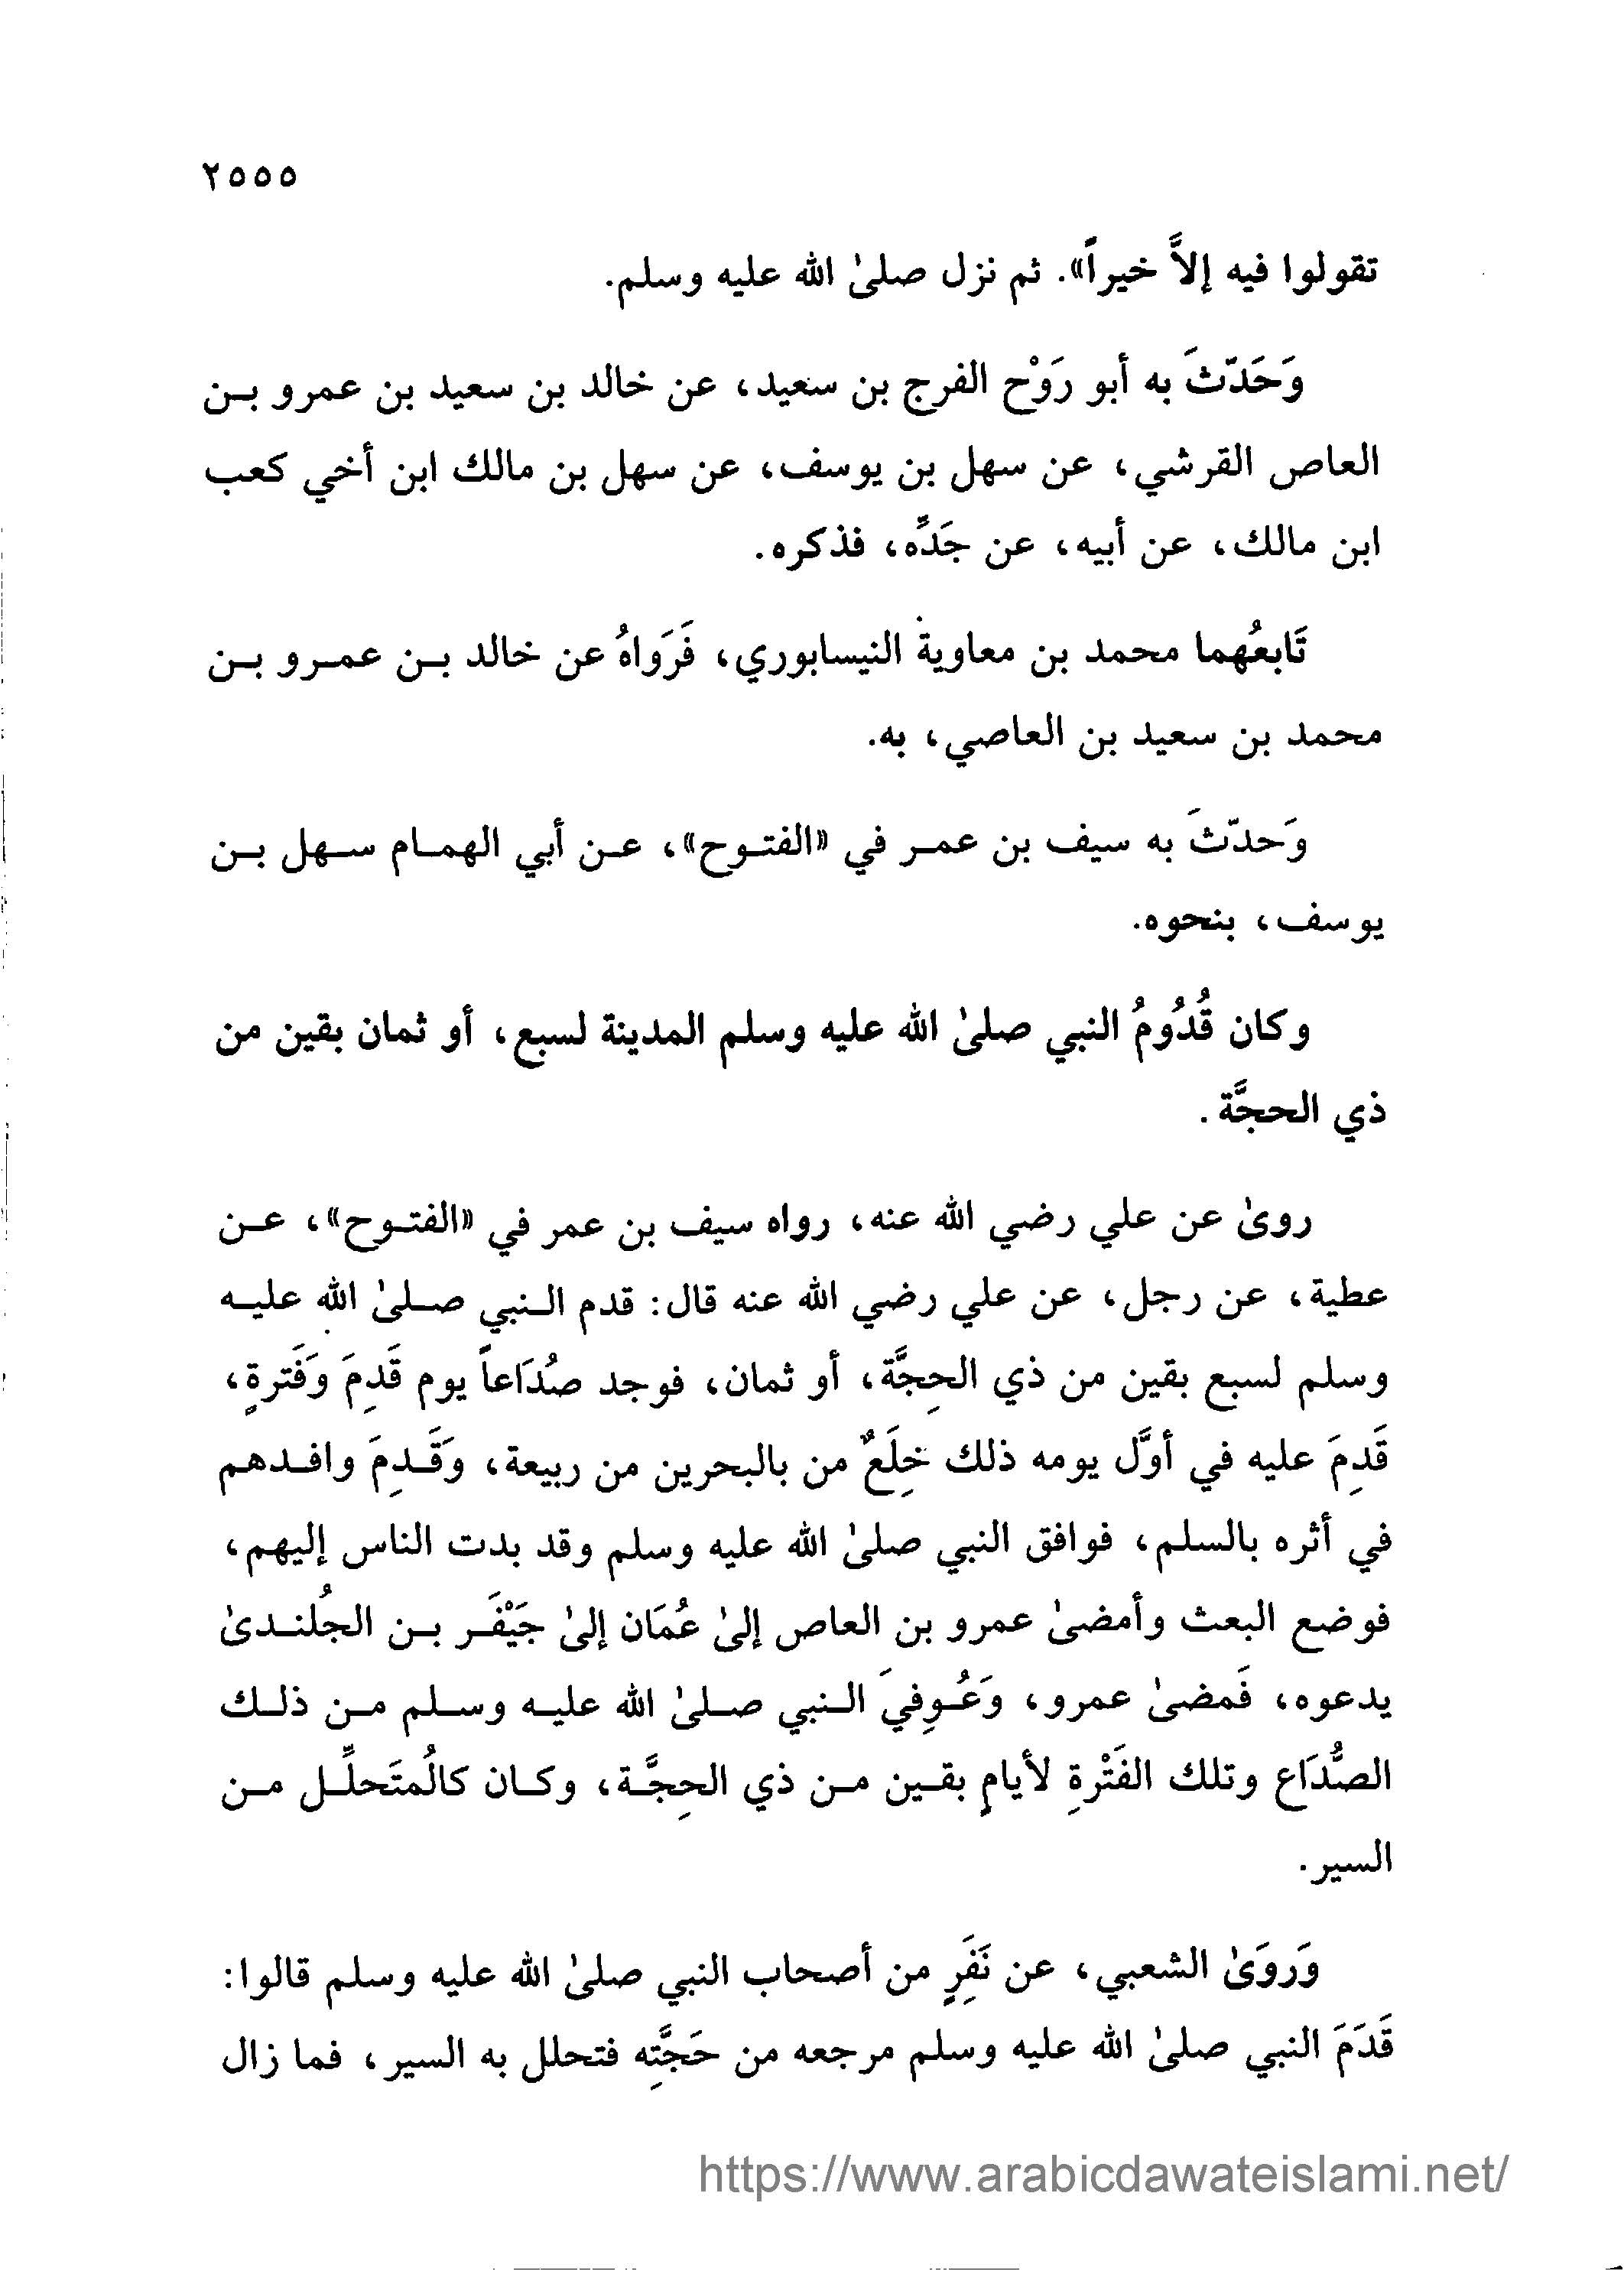 ٢٥٥٥
تقولوا فيه إلاَّ خيراً». ثم نزل صلىٰ الله عليه وسلم.
وَحَدّثَ به أبو رَوْح الفرج بن سعيد، عن خالد بن سعيد بن عمرو بـن
العاص القرشي، عن سهل بن يوسف، عن سهل بن مالك ابن أخي كعب
ابن مالك، عن أبيه، عن جَدِّه، فذكره.
تَابعُهما محمد بن معاوية النيسابوري، فَرَواهُ عن خالد بـن عمـرو بـن
محمد بن سعيد بن العاصي، به.
وَحدّثَ به سيف بن عمـر في «الفتـوح»، عـن أبي الهمـام سـهل بـن
يوسف، بنحوه.
وكان قُدُومُ النبي صلىٰ الله عليه وسلم المدينة لسبع، أو ثمان بقين من
ذي الحجَّة.
روىٰ عن علي رضي الله عنه، رواه سيف بن عمر في «الفتـوح»، عـن
عطية، عن رجل، عن علي رضي الله عنه قال: قدم النـبي صـلىٰ الله عليـه
وسلم لسبع بقين من ذي الحِجَّة، أو ثمان، فوجد صُدَاعاً يوم قَدِمَ وَفَترةٍ،
قَدِمَ عليه في أوَّل يومه ذلك خِلَعٌ من بالبحرين من ربيعة، وَقَـدِمَ وافـدهم
في أثره بالسلم، فوافق النبي صلىٰ الله عليه وسلم وقد بدت الناس إليهم،
فوضع البعث وأمضىٰ عمرو بن العاص إلىٰ عُمَان إلىٰ جَيْفَـر بـن الجُلنـدىٰ
يدعوه، فَمضىٰ عمرو، وَعُـوفِيَ النـبي صـلىٰ الله عليـه وسـلم مـن ذلـك
الصُّدَاع وتلك الفَتْرةِ لأيامٍ بقـين مـن ذي الحِجَّـة، وكـان كالُمتَحلِّـل مـن
السير.
وَرَوَىٰ الشعبي، عن نَفَرٍ من أصحاب النبي صلىٰ الله عليه وسلم قالوا:
قَدَمَ النبي صلىٰ الله عليه وسلم مرجعه من حَجَّتِه فتحلل به السير، فما زال
https://www.arabicdawateislami.net/